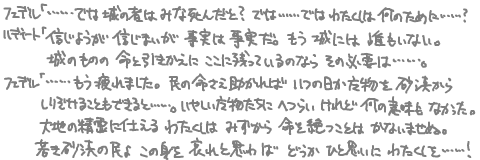 フェデル「……では 城の者は みな死んだと? では……では わたくしは 何のために……?
リチャート「信じようが 信じまいが 事実は 事実だ。もう 城には 誰もいない。
城のものの 命と引きかえに ここに残っているのなら その必要は……。
フェデル「……もう 疲れました。民の命さえ助かれば いつの日か 魔物を 砂漠から
しりぞけることもできると……。いやしい魔物たちに へつらい けれど 何の意味も なかった。
大地の精霊に仕える わたくしは みずから 命を絶つことは かないませぬ。
若き砂漠の民よ この身を 哀れと思わば どうか ひと思いに わたくしを……!